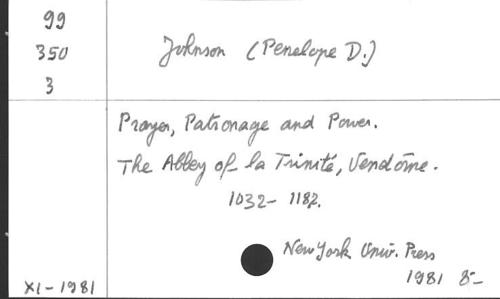 99
350
3
Johnson (Penelope D.)
Prayer, Patronage and Power.
The Abbey of la Trinité, Vendôme.
1032- 1187.
New York Univ. Press
1981 8-
XI-1981